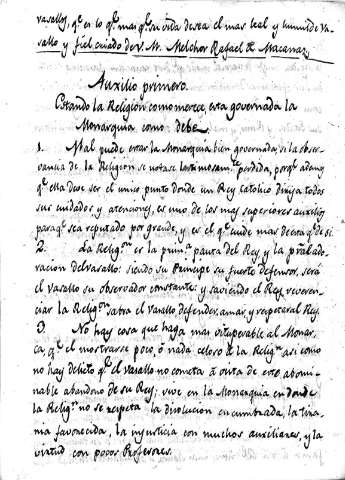 vasallos, qᵉ es lo qᵉ mas qᵉ su vida desea el mas leal y humilde Va-
sallo y fiel criado de V. M. Melchor Rafael de Macanaz,
Auxilio primero.
Estando la Religion como merece, esta governada la
Monarquia como debe
1. Mal puede estar la Monarquia bien governada, si la obser-
vancia de la Religion se notase lastimosamᵗᵉ perdida, porqᵉ ademas
qᵉ ella deve ser el unico punto donde un Rey Catolico dirija todos
sus cuidados y atenciones, es uno de los mas superiores auxilios
paraqᵉ sea reputado por grande, y es el qᵉ cuide mas de esta qᵉ de si.
2. La Religⁿ es la primᵃ pauta del Rey y la prâl ado-
racion del vasallo: siendo su Principe su fuerte defensor, será
el Vasallo su observador constante: y saviendo el Rey reveren-
ciar la Religⁿ sabra el Vasallo defender, amar y respetar al Rey.
3. No hay cosa que haga mas vituperable al Monar-
ca, qᵉ el mostrarse poco, ó nada celoso de la Religⁿ asi como
no hay delito qᵉ el vasallo no cometa á vista de este abomi-
nable abandono de su Rey; vive en la Monarquia en donde
la Religⁿ no se respeta la disolucion encumbrada, la tira-
nia favorecida, la injusticia con muchos auxiliares, y la
virtud con pocos Profesores.